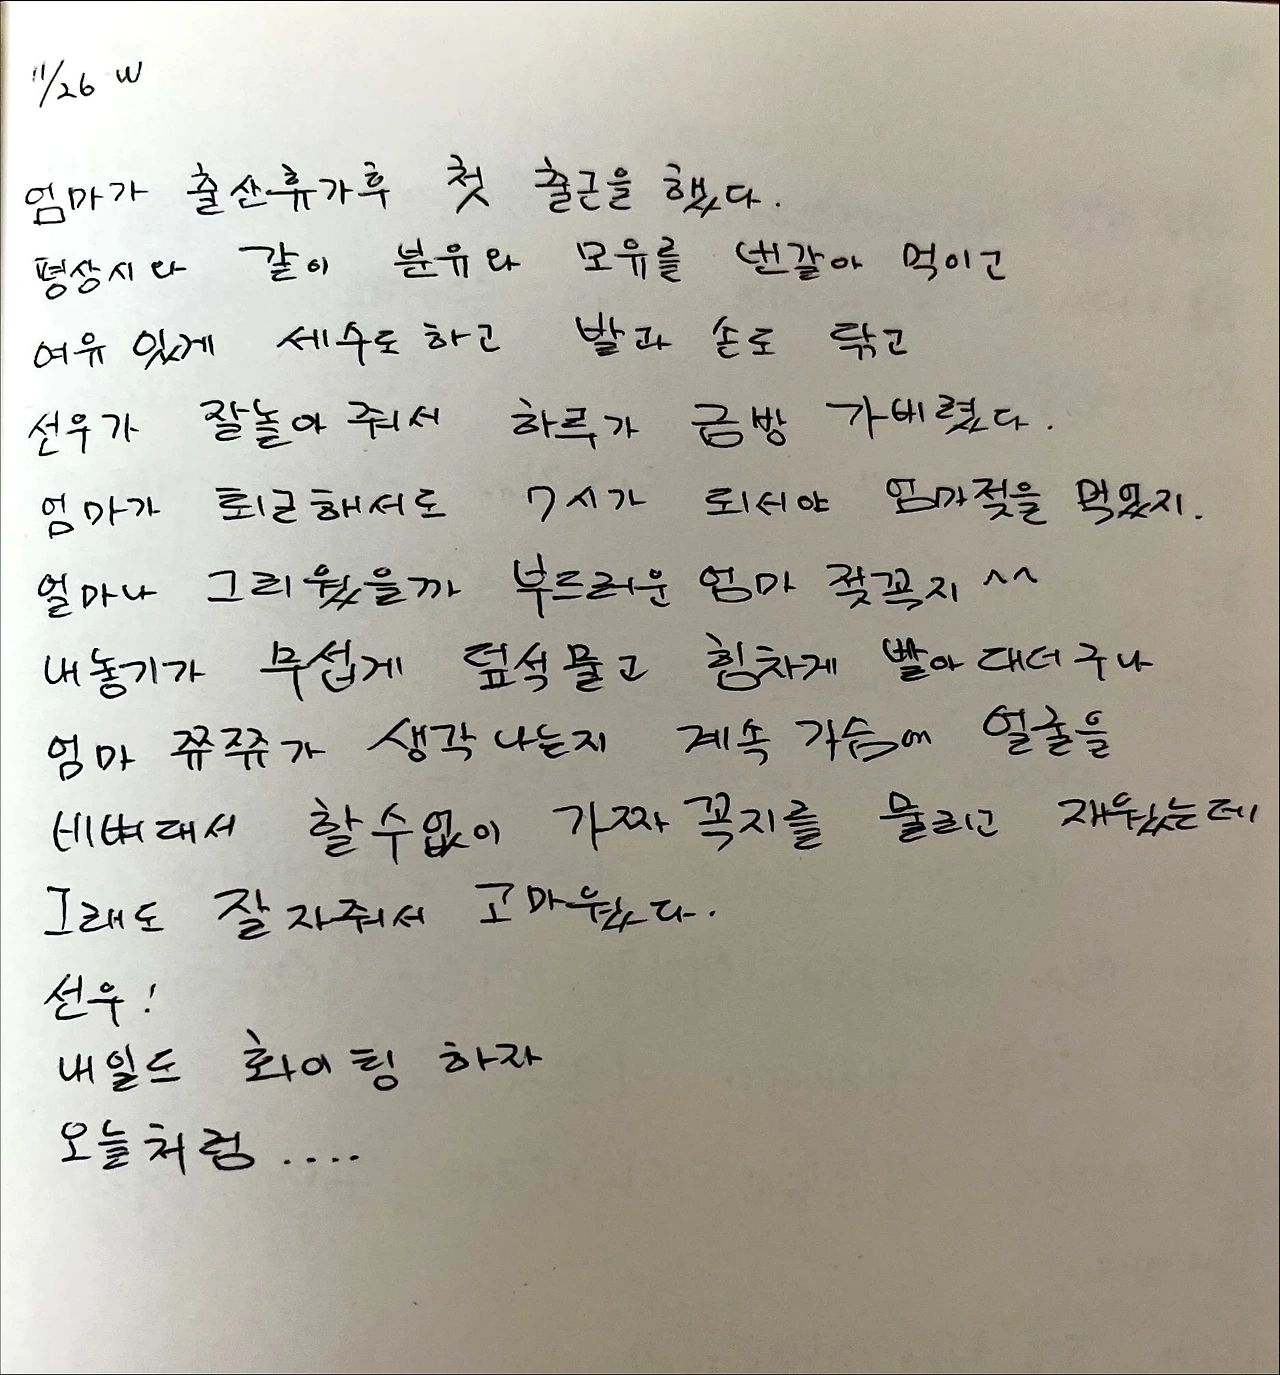 11/26 W
엄마가 출산휴가후 첫 출근을 했다.
평상시와 같이 분유와 모유를 번갈아 먹이고
여유 있게 세수도하고 발과 손도 닦고
선우가 잘놀아 줘서 하루가 금방 가버렸다.
엄마가 퇴근해서도 7시가 되서야 엄마젖을 먹었지.
얼마나 그리웠을까 부드러운 엄마 젖꼭지 ^^
내놓기가 무섭게 덮석물고 힘차게 빨아대더구나
엄마 쮸쮸가 생각나는지 계속 가슴에 얼굴을
비벼대서 할수없이 가짜꼭지를 물리고 재웠는데
그래도 잘자줘서 고마웠다.
선우!
내일도 화이팅 하자
오늘처럼....